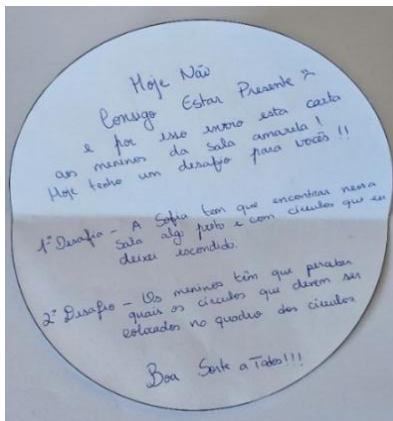 Hoje Não
Consigo Estar Presente
e por isso envio esta carta
aos meninos da sala amarela!
Hoje tenho um desafio para vocês!!
1º Desafio - A Sofia tem que encontrar nessa
sala algo preto e com círculos que eu
deixei escondido.
2º Desafio - Os meninos têm que perceber
quais os círculos que devem ser
colocados no quadro dos círculos
Boa Sorte a Todos!!!